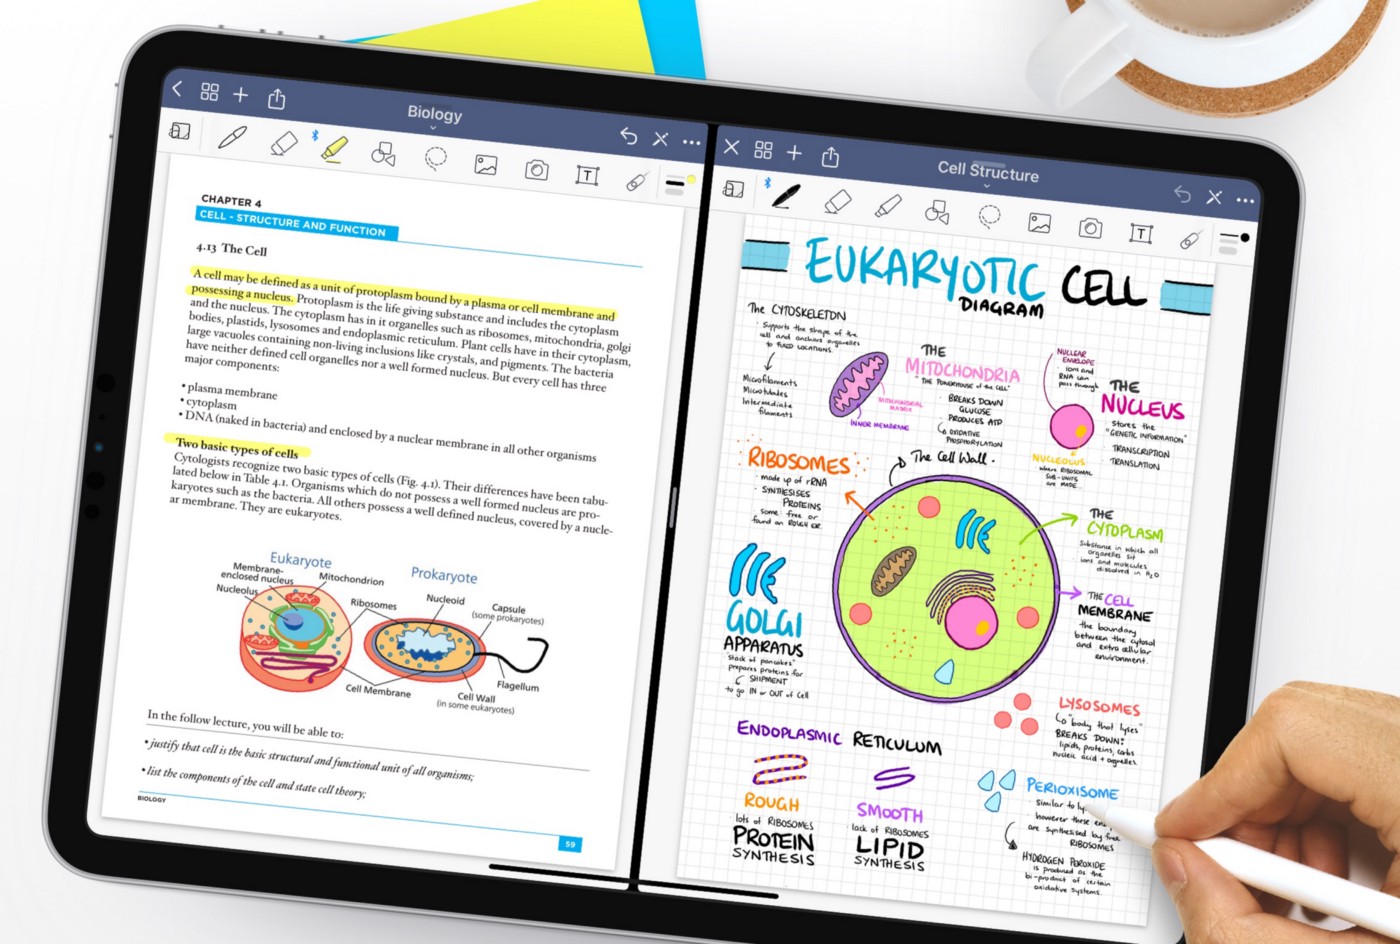 Biology
CHAPTER 4
CELL - STRUCTURE AND FUNCTION
4.13 The Cell
A cell may be defined as a unit of protoplasm bound by a plasma or cell membrane and
possessing a nucleus. Protoplasm is the life giving substance and includes the cytoplasm
and the nucleus. The cytoplasm has in it organelles such as ribosomes, mitochondria, golgi
bodies, plastids, lysosomes and endoplasmic reticulum. Plant cells have in their cytoplasm,
large vacuoles containing non-living inclusions like crystals, and pigments. The bacteria
have neither defined cell organelles nor a well formed nucleus. But every cell has three
major components:
• plasma membrane
• cytoplasm
• DNA (naked in bacteria) and enclosed by a nuclear membrane in all other organisms
Two basic types of cells
Cytologists recognize two basic types of cells (Fig. 4.1). Their differences have been tabu-
lated below in Table 4.1. Organisms which do not possess a well formed nucleus are pro-
karyotes such as the bacteria. All others possess a well defined nucleus, covered by a nucle-
ar membrane. They are eukaryotes.
Eukaryote
Membrane-
enclosed nucleus
Nucleolus
Mitochondrion
Ribosomes
Prokaryote
Nucleoid
Capsule
(some prokaryotes)
Flagellum
Cell Membrane
Cell Wall
(in some eukaryotes)
In the follow lecture, you will be able to:
• justify that cell is the basic structural and functional unit of all organisms;
• list the components of the cell and state cell theory;
BIOLOGY
59
Cell Structure
EUKARYOTIC CELL
DIAGRAM
The CYTOSKELETON
· Supports the shape of the
cell and anchors organelles
to FIXED LOCATIONS.
Microfilaments
Microtubules
Intermediate
filaments
THE
MITOCHONDRIA
"THE POWERHOUSE of the CELL"
· BREAKS DOWN
GLUCOSE
· PRODUCES ATP
OXIDATIVE
PHOSPHORYLATION
MITOCHONDRIAL
MATRIX
INNER MEMBRANE
NUCLEAR
ENVELOPE
· ions and
RNA can
pass through
THE
NUCLEUS
Stores the
"GENETIC INFORMATION"
TRANSCRIPTION
TRANSLATION
NUCLEOLUS
where RIBOSOMAL
SUB-UNITS
are MADE
RIBOSOMES
· made up of rRNA
· SYNTHESISES
PROTEINS
Some: free or
found on ROUGH ER.
The Cell Wall.
THE
CYTOPLASM
Substance in which all
organelles sit
ions and molecules
dissolved in H₂O
THE CELL
MEMBRANE
the boundary
between the cytosol
and extra cellular
environment.
GOLGI
APPARATUS
"Stack of pancakes"
prepares proteins for
SHIPMENT
to go IN or OUT of Cell
LYSOSOMES
"body that lyses"
BREAKS DOWN:
lipids, proteins, carbs
nucleic acid + organelles.
ENDOPLASMIC RETICULUM
ROUGH
· lots of RIBOSOMES
PROTEIN
SYNTHESIS
SMOOTH
lack of RIBOSOMES
LIPID
SYNTHESIS
PERIOXISOME
Similar to
however these
are synthesised by free
RIBOSOMES
HYDROGEN PEROXIDE
is produced as the
bi-product of certain
oxidative systems.